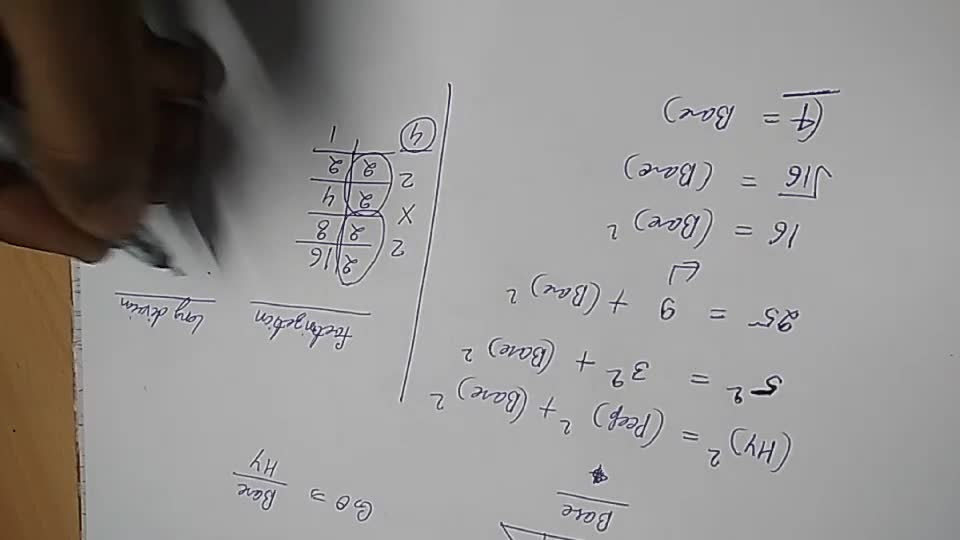 Base
Cosθ = Base
Hy
(Hy)² = (Perp)² + (Base)²
5² = 3² + (Base)²
25 = 9 + (Base)²
16 = (Base)²
√16 = (Base)
4 = Base)
factorization
Long division
2 | 16
2 | 8
2 | 4
2 | 2
1
2 × 2
4